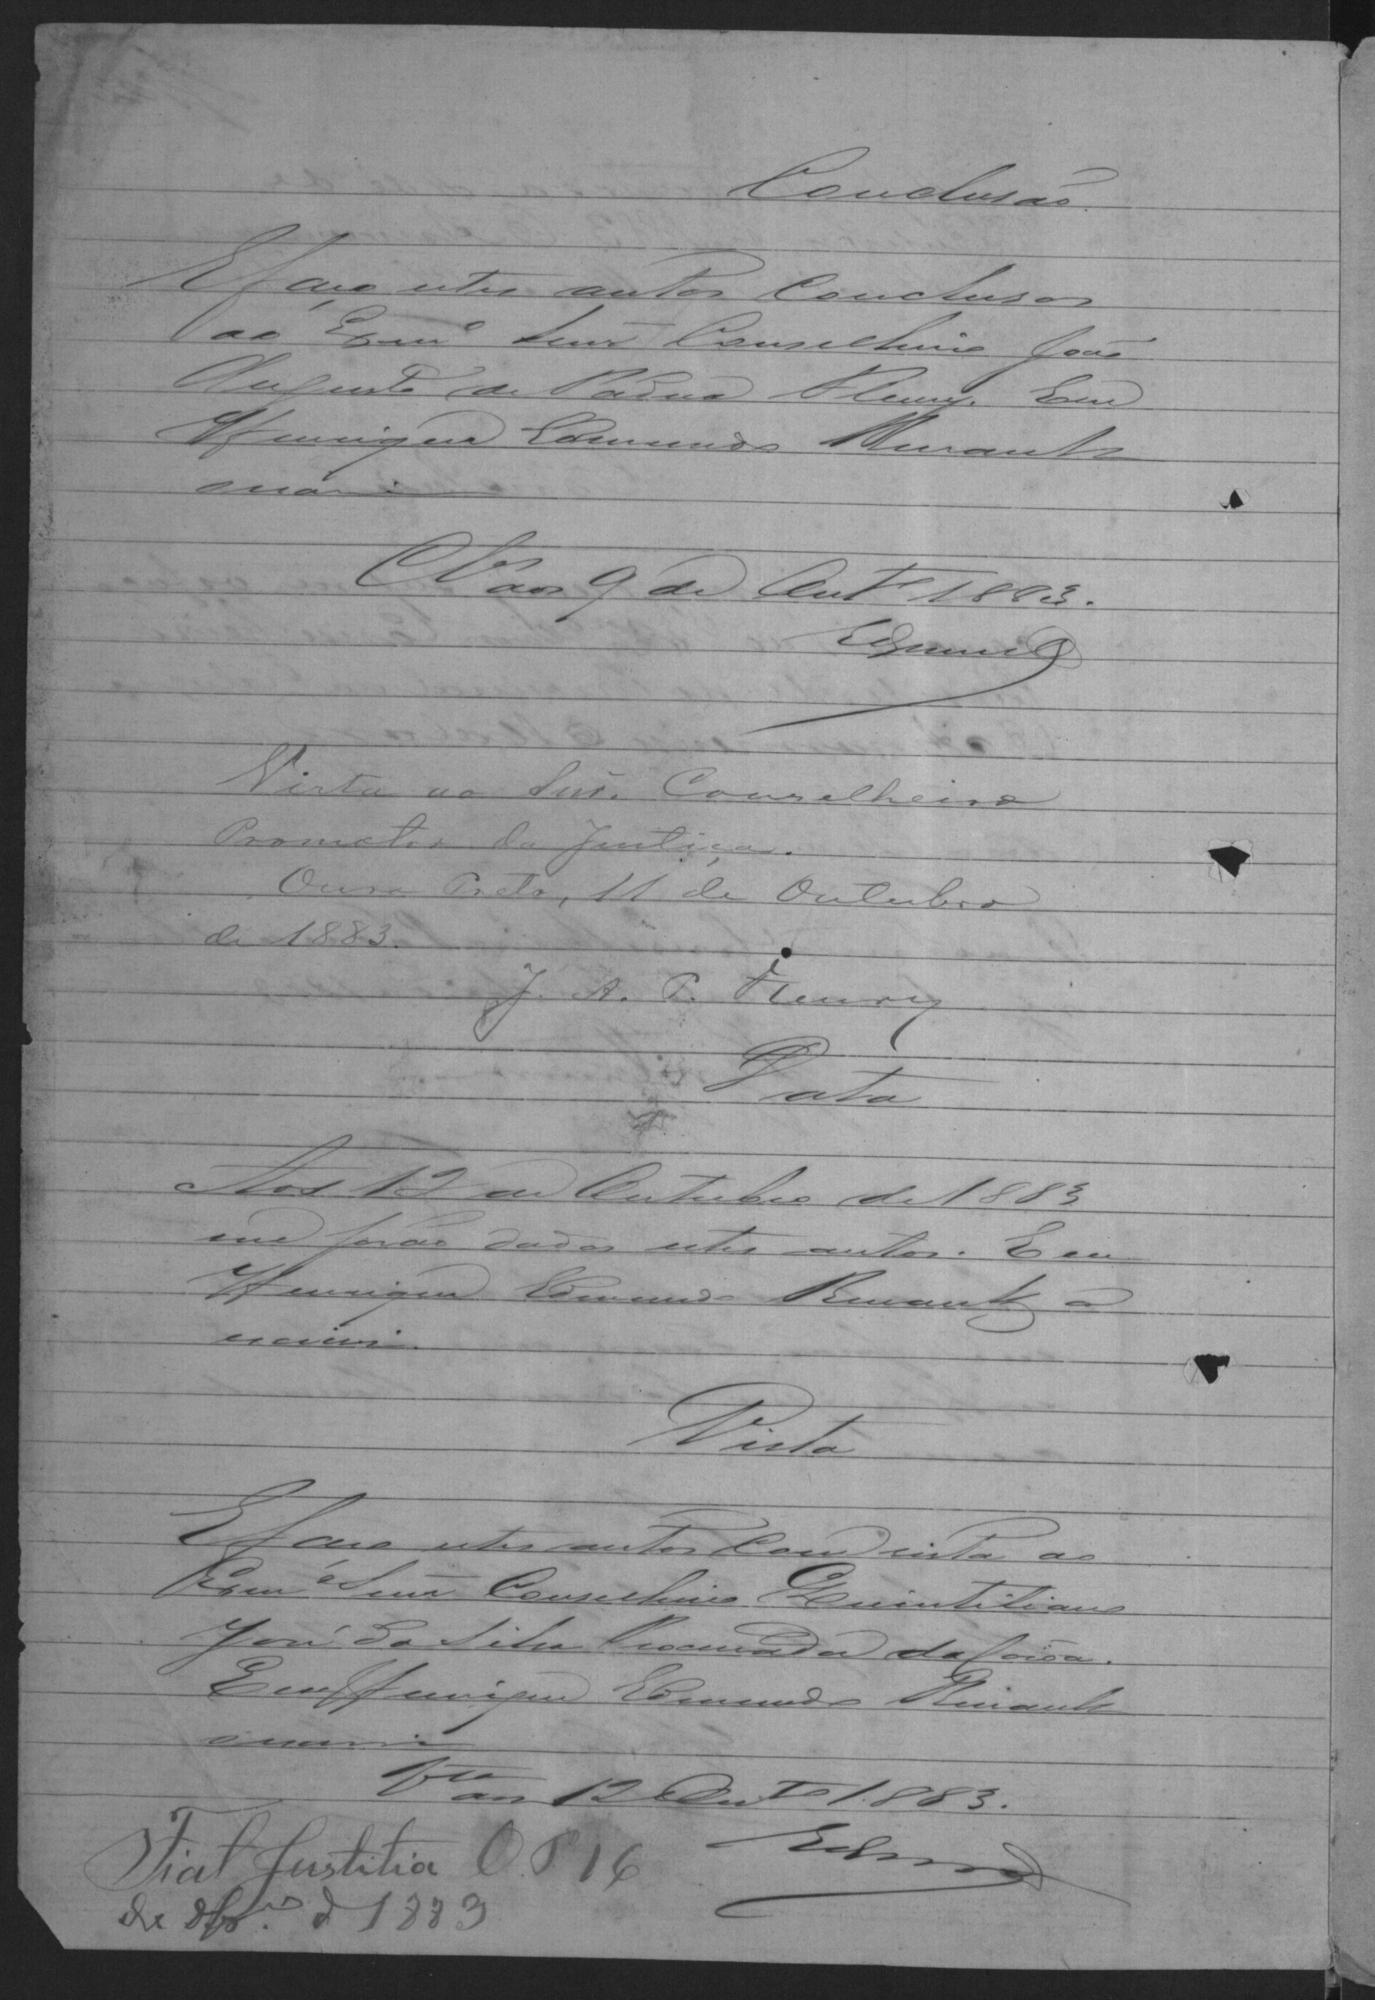 Conclusão
E faço estes autos conclusos
ao Exmº Senr Conselheiro João
Augusto de Padua Fleury. Eu
Henrique Edmundo Renault
escrivi
Clsos aos 9 de Outº 1883.
Edmundo
Vista ao Snr. Conselheiro
Promotor da Justiça.
Ouro Preto, 11 de Outubro
de 1883.
J. A. P. Fleury
Data
Aos 12 de Outubro de 1883
me forão dados estes autos. Eu
Henrique Edmundo Renault o
escrivi.
Vista
E faço estes autos com vista ao
Exmº Senr Conselheiro Quintiliano
José da Silva Procurador da Corôa.
Eu Henrique Edmundo Renault
escrivi
Vta aos 12 Outº 1883.
Edmundo
Fiat Justitia O. P. 16
de 8brº. d 1883